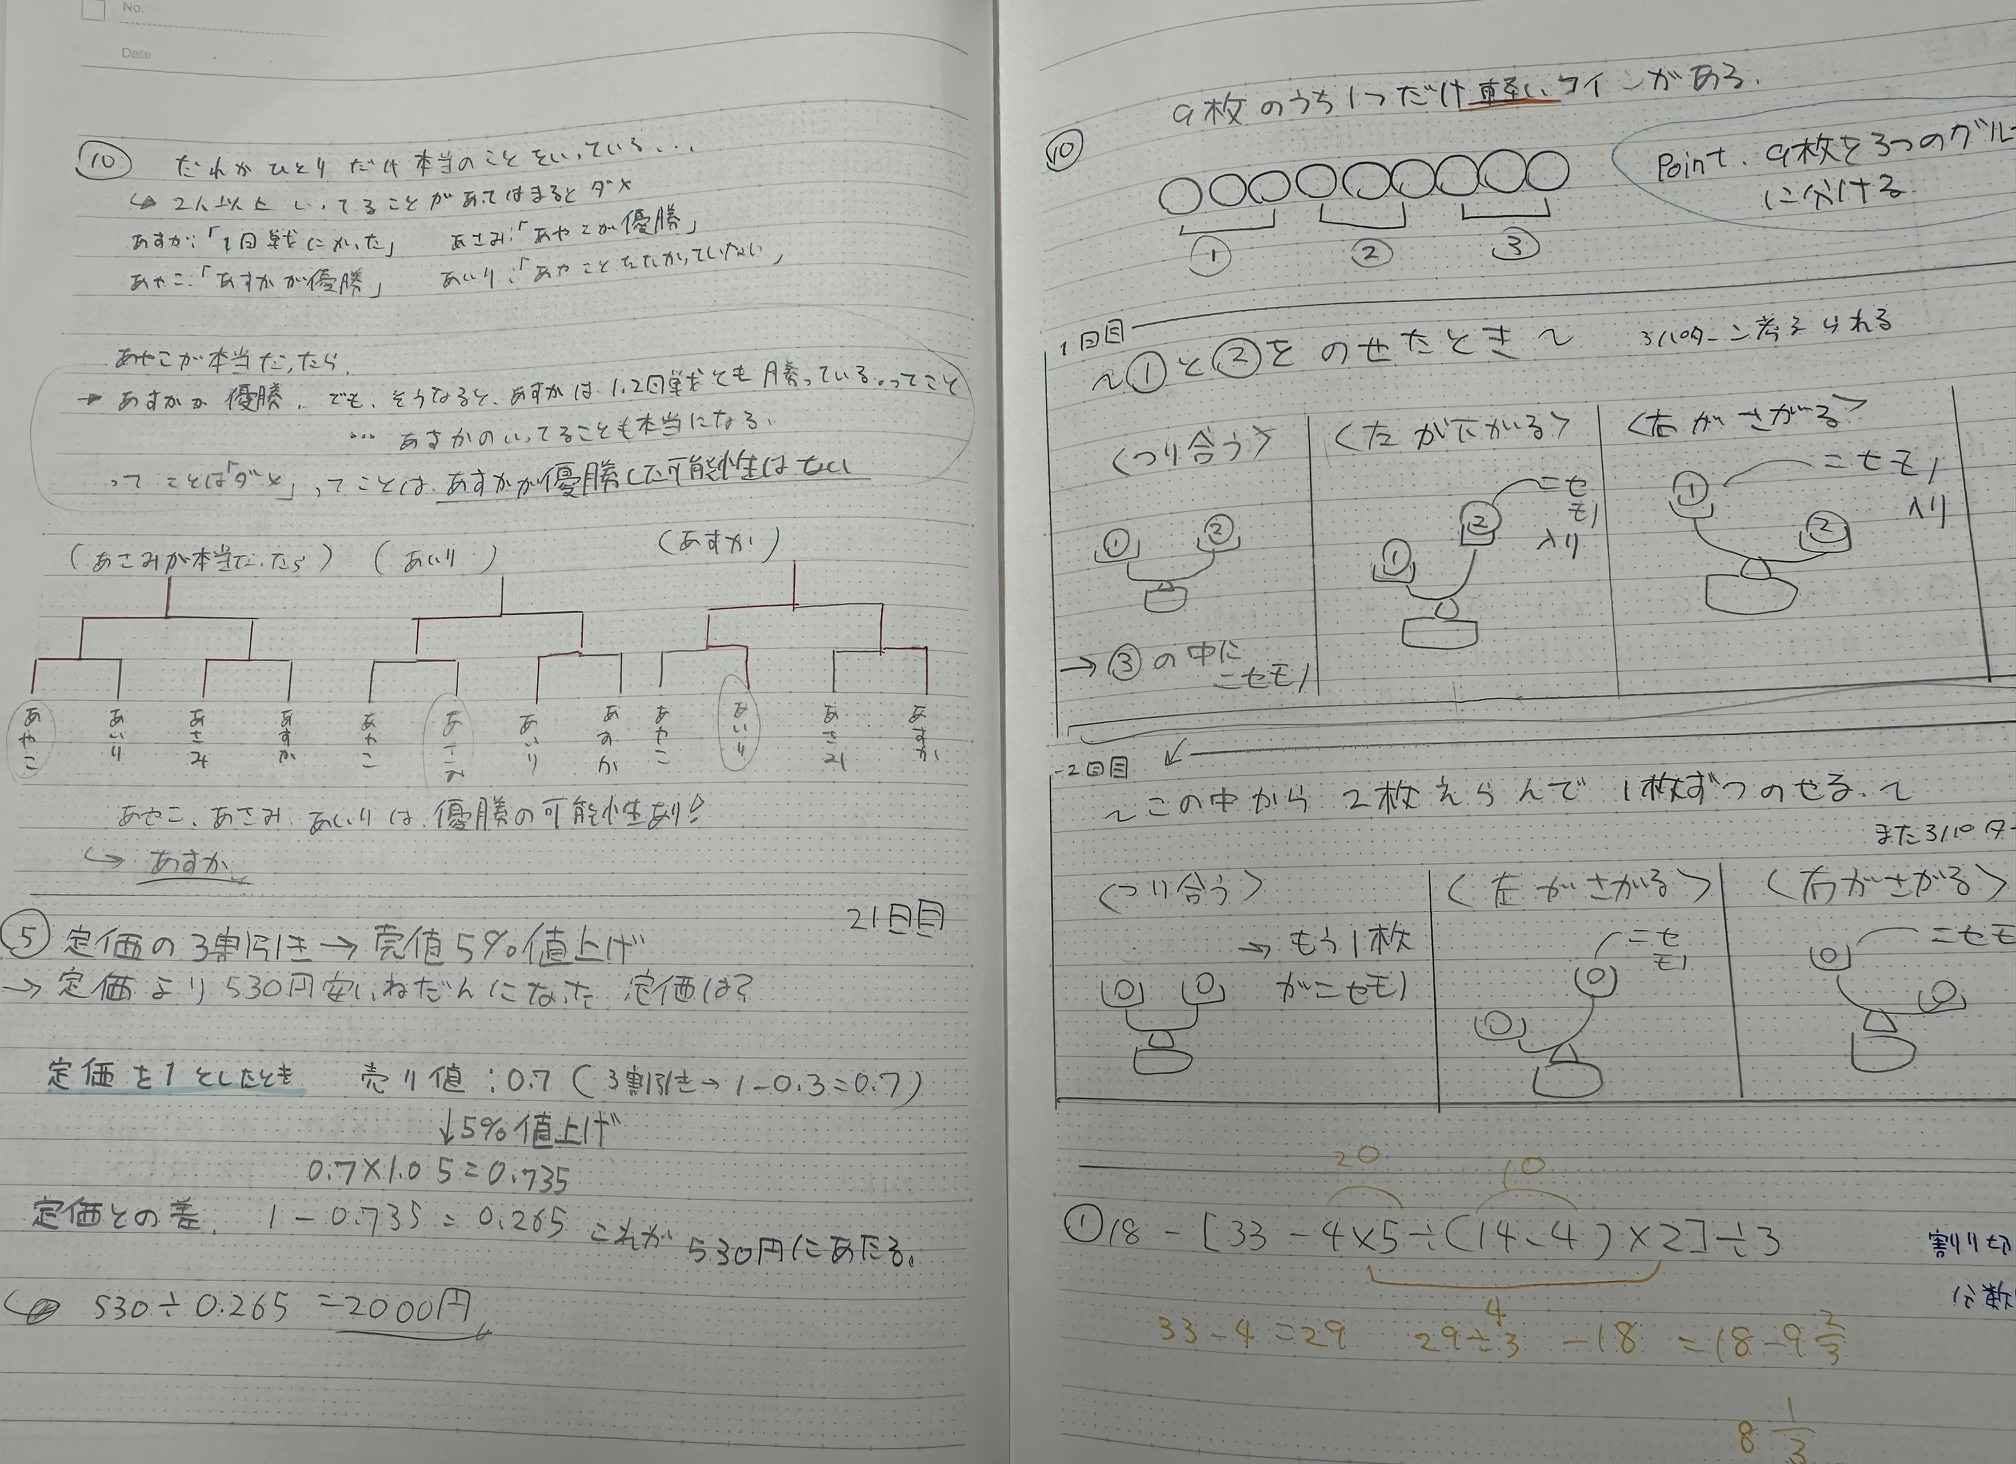 No.
Date
⑩ だれかひとりだけ本当のことをいっている...
↳ 2人以上いってることがあてはまるとダメ
あすか:「1回戦にかった」 あさみ:「あやこが優勝」
あやこ:「あすかが優勝」 あいり:「あやことたたかっていない」
あやこが本当だったら、
→ あすかが優勝。でも、そうなると、あすかは1.2回戦とも勝っている。ってこと
… あすかのいってることも本当になる、
ってことは「ダメ」ってことは、あすかが優勝した可能性はない
(あさみが本当だったら) (あいり) (あすか)
あやこ あいり あさみ あすか あやこ あさみ あいり あすか あやこ あいり あさみ あすか
あやこ、あさみ、あいりは、優勝の可能性あり!
↪ あすか
21日目
⑤ 定価の3割引き→売値5%値上げ
→ 定価より530円安いねだんになった 定価は?
定価を1としたとき 売り値:0.7(3割引き→1-0.3=0.7)
↓5%値上げ
0.7×1.05=0.735
定価との差、 1-0.735=0.265 これが530円にあたる。
↪ 530÷0.265=2000円
⑩ 9枚のうち1つだけ軽いコインがある.
Point. 9枚を3つのグルー
に分ける
① ② ③
1回目
~①と②をのせたとき~ 3パターン考えられる
<つり合う> <左が下がる> <右がさがる>
① ② ① ② ニセモノ入り ① ニセモノ入り ②
→③の中にニセモノ
2回目
~この中から2枚えらんで1枚ずつのせる.~
また3パター
<つり合う> <左がさがる> <右がさがる>
→もう1枚がニセモノ ニセモノ ニセモ
20 10
① 18-[33-4×5÷(14-4)×2]÷3 割り切
4 分数
33-4=29 29÷3 -18 =18-9 2/3
8 1/3